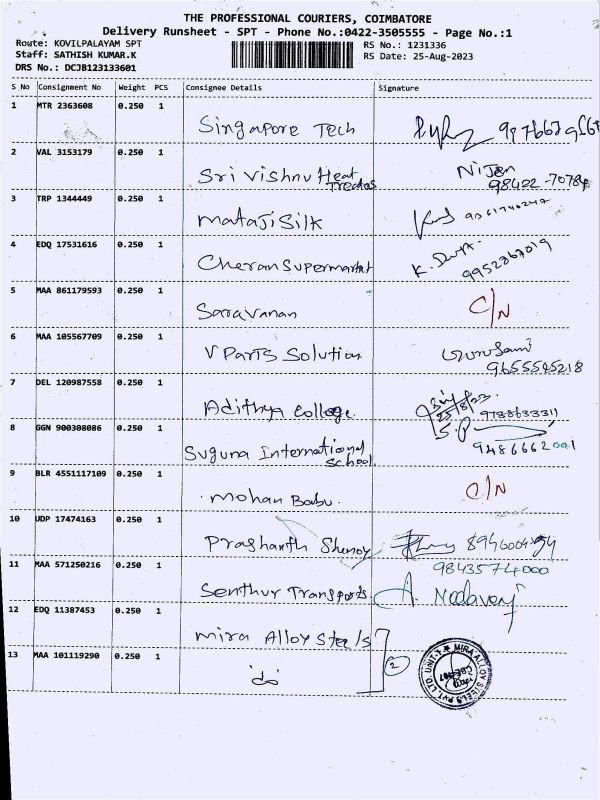 THE PROFESSIONAL COURIERS, COIMBATORE
Delivery Runsheet - SPT - Phone No.:0422-3505555 - Page No.:1
Route: KOVILPALAYAM SPT
RS No.: 1231336
Staff: SATHISH KUMAR.K
RS Date: 25-Aug-2023
DRS No.: DCJB123133601
S No Consignment No Weight PCS Consignee Details Signature
1 MTR 2363608 0.250 1
Singapore Tech
2 VAL 3153179 0.250 1
Sri Vishnu Heat
Treatas
98422-70784
3 TRP 1344449 0.250 1
Mataji Silk
4 EDQ 17531616 0.250 1
Cheran Supermarket
9952867019
5 MAA 861179593 0.250 1
Saravanan C/N
6 MAA 105567709 0.250 1
V Parts Solution
9655545218
7 DEL 120987558 0.250 1
Adithya College.
25/8/23
9788633311
8 GGN 900308086 0.250 1
S.P
Suguna International
School
9486662001
9 BLR 4551117109 0.250 1
Mohan Babu. C/N
10 UDP 17474163 0.250 1
Prashanth Shenoy
11 MAA 571250216 0.250 1
9843574000
Senthur Transports
12 EDQ 11387453 0.250 1
Mira Alloy Steels
13 MAA 101119290 0.250 1
2
do
MIRA ALLOY STEELS PVT. LTD. UNIT-1